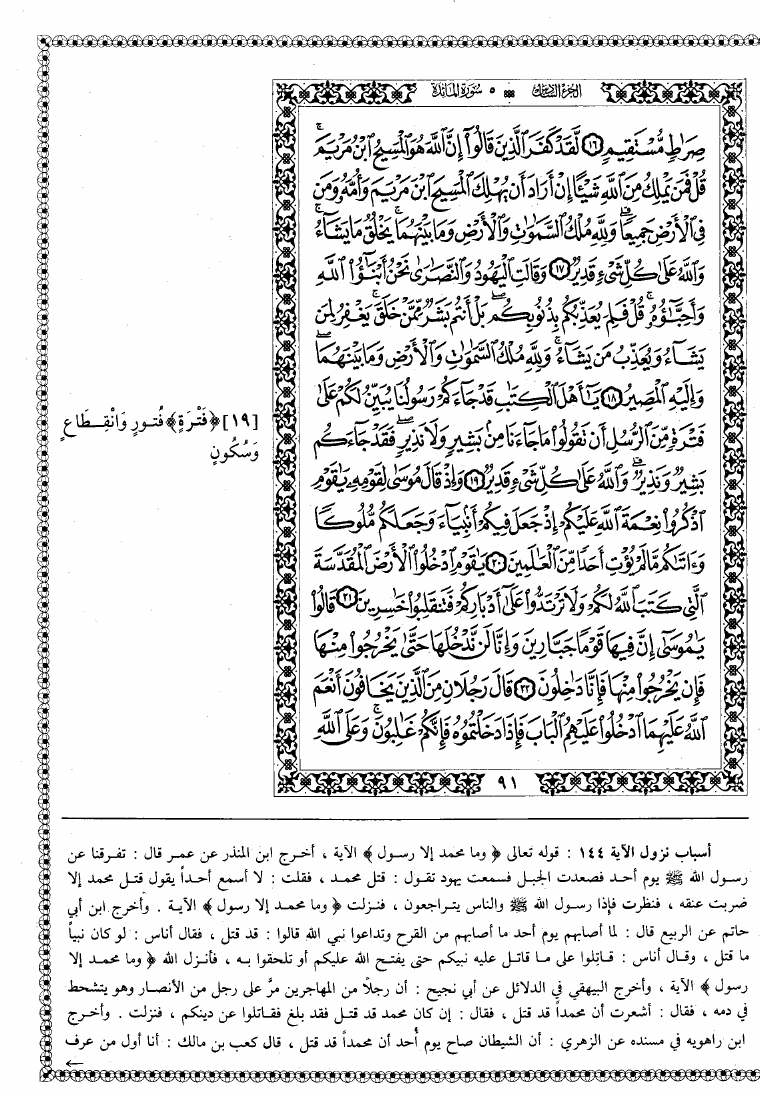 الجزء السادس ٥ سورة المائدة
صِرَٰطٍ مُّسْتَقِيمٍ ١٦ لَّقَدْ كَفَرَ ٱلَّذِينَ قَالُوٓا۟ إِنَّ ٱللَّهَ هُوَ ٱلْمَسِيحُ ٱبْنُ مَرْيَمَ ۚ
قُلْ فَمَن يَمْلِكُ مِنَ ٱللَّهِ شَيْـًٔا إِنْ أَرَادَ أَن يُهْلِكَ ٱلْمَسِيحَ ٱبْنَ مَرْيَمَ وَأُمَّهُۥ وَمَن
فِى ٱلْأَرْضِ جَمِيعًا ۗ وَلِلَّهِ مُلْكُ ٱلسَّمَٰوَٰتِ وَٱلْأَرْضِ وَمَا بَيْنَهُمَا ۚ يَخْلُقُ مَا يَشَآءُ ۚ
وَٱللَّهُ عَلَىٰ كُلِّ شَىْءٍ قَدِيرٌ ١٧ وَقَالَتِ ٱلْيَهُودُ وَٱلنَّصَٰرَىٰ نَحْنُ أَبْنَٰٓؤُا۟ ٱللَّهِ
وَأَحِبَّٰٓؤُهُۥ ۚ قُلْ فَلِمَ يُعَذِّبُكُم بِذُنُوبِكُم ۖ بَلْ أَنتُم بَشَرٌ مِّمَّنْ خَلَقَ ۚ يَغْفِرُ لِمَن
يَشَآءُ وَيُعَذِّبُ مَن يَشَآءُ ۚ وَلِلَّهِ مُلْكُ ٱلسَّمَٰوَٰتِ وَٱلْأَرْضِ وَمَا بَيْنَهُمَا ۖ
وَإِلَيْهِ ٱلْمَصِيرُ ١٨ يَٰٓأَهْلَ ٱلْكِتَٰبِ قَدْ جَآءَكُمْ رَسُولُنَا يُبَيِّنُ لَكُمْ عَلَىٰ
فَتْرَةٍ مِّنَ ٱلرُّسُلِ أَن تَقُولُوا۟ مَا جَآءَنَا مِنۢ بَشِيرٍ وَلَا نَذِيرٍ ۖ فَقَدْ جَآءَكُم
بَشِيرٌ وَنَذِيرٌ ۗ وَٱللَّهُ عَلَىٰ كُلِّ شَىْءٍ قَدِيرٌ ١٩ وَإِذْ قَالَ مُوسَىٰ لِقَوْمِهِۦ يَٰقَوْمِ
ٱذْكُرُوا۟ نِعْمَةَ ٱللَّهِ عَلَيْكُمْ إِذْ جَعَلَ فِيكُمْ أَنۢبِيَآءَ وَجَعَلَكُم مُّلُوكًا
وَءَاتَىٰكُم مَّا لَمْ يُؤْتِ أَحَدًا مِّنَ ٱلْعَٰلَمِينَ ٢٠ يَٰقَوْمِ ٱدْخُلُوا۟ ٱلْأَرْضَ ٱلْمُقَدَّسَةَ
ٱلَّتِى كَتَبَ ٱللَّهُ لَكُمْ وَلَا تَرْتَدُّوا۟ عَلَىٰٓ أَدْبَارِكُمْ فَتَنقَلِبُوا۟ خَٰسِرِينَ ٢١ قَالُوا۟
يَٰمُوسَىٰٓ إِنَّ فِيهَا قَوْمًا جَبَّارِينَ وَإِنَّا لَن نَّدْخُلَهَا حَتَّىٰ يَخْرُجُوا۟ مِنْهَا
فَإِن يَخْرُجُوا۟ مِنْهَا فَإِنَّا دَٰخِلُونَ ٢٢ قَالَ رَجُلَانِ مِنَ ٱلَّذِينَ يَخَافُونَ أَنْعَمَ
ٱللَّهُ عَلَيْهِمَا ٱدْخُلُوا۟ عَلَيْهِمُ ٱلْبَابَ فَإِذَا دَخَلْتُمُوهُ فَإِنَّكُمْ غَٰلِبُونَ ۚ وَعَلَى ٱللَّهِ
٩١
[١٩] ﴿فَتْرَةٍ﴾ فُتورٍ وَانْقِطَاعٍ
وَسُكُونٍ
أسباب نزول الآية ١٤٤ : قوله تعالى ﴿ وما محمد إلا رسول ﴾ الآية ، أخرج ابن المنذر عن عمر قال : تفرقنا عن
رسول الله ﷺ يوم أحد فصعدت الجبل فسمعت يهود تقول : قتل محمد ، فقلت : لا أسمع أحداً يقول قتل محمد إلا
ضربت عنقه ، فنظرت فإذا رسول الله ﷺ والناس يتراجعون ، فنزلت ﴿ وما محمد إلا رسول ﴾ الآية . وأخرج ابن أبي
حاتم عن الربيع قال : لما أصابهم يوم أحد ما أصابهم من القرح وتداعوا نبي الله قالوا : قد قتل ، فقال أناس : لو كان نبياً
ما قتل ، وقال أناس : قاتلوا على ما قاتل عليه نبيكم حتى يفتح الله عليكم أو تلحقوا به ، فأنزل الله ﴿ وما محمد إلا
رسول ﴾ الآية ، وأخرج البيهقي في الدلائل عن أبي نجيح : أن رجلاً من المهاجرين مرَّ على رجل من الأنصار وهو يتشحط
في دمه ، فقال : أشعرت أن محمداً قد قتل ، فقال : إن كان محمد قد قتل فقد بلغ فقاتلوا عن دينكم ، فنزلت . وأخرج
ابن راهويه في مسنده عن الزهري : أن الشيطان صاح يوم أُحد أن محمداً قد قتل ، قال كعب بن مالك : أنا أول من عرف
←